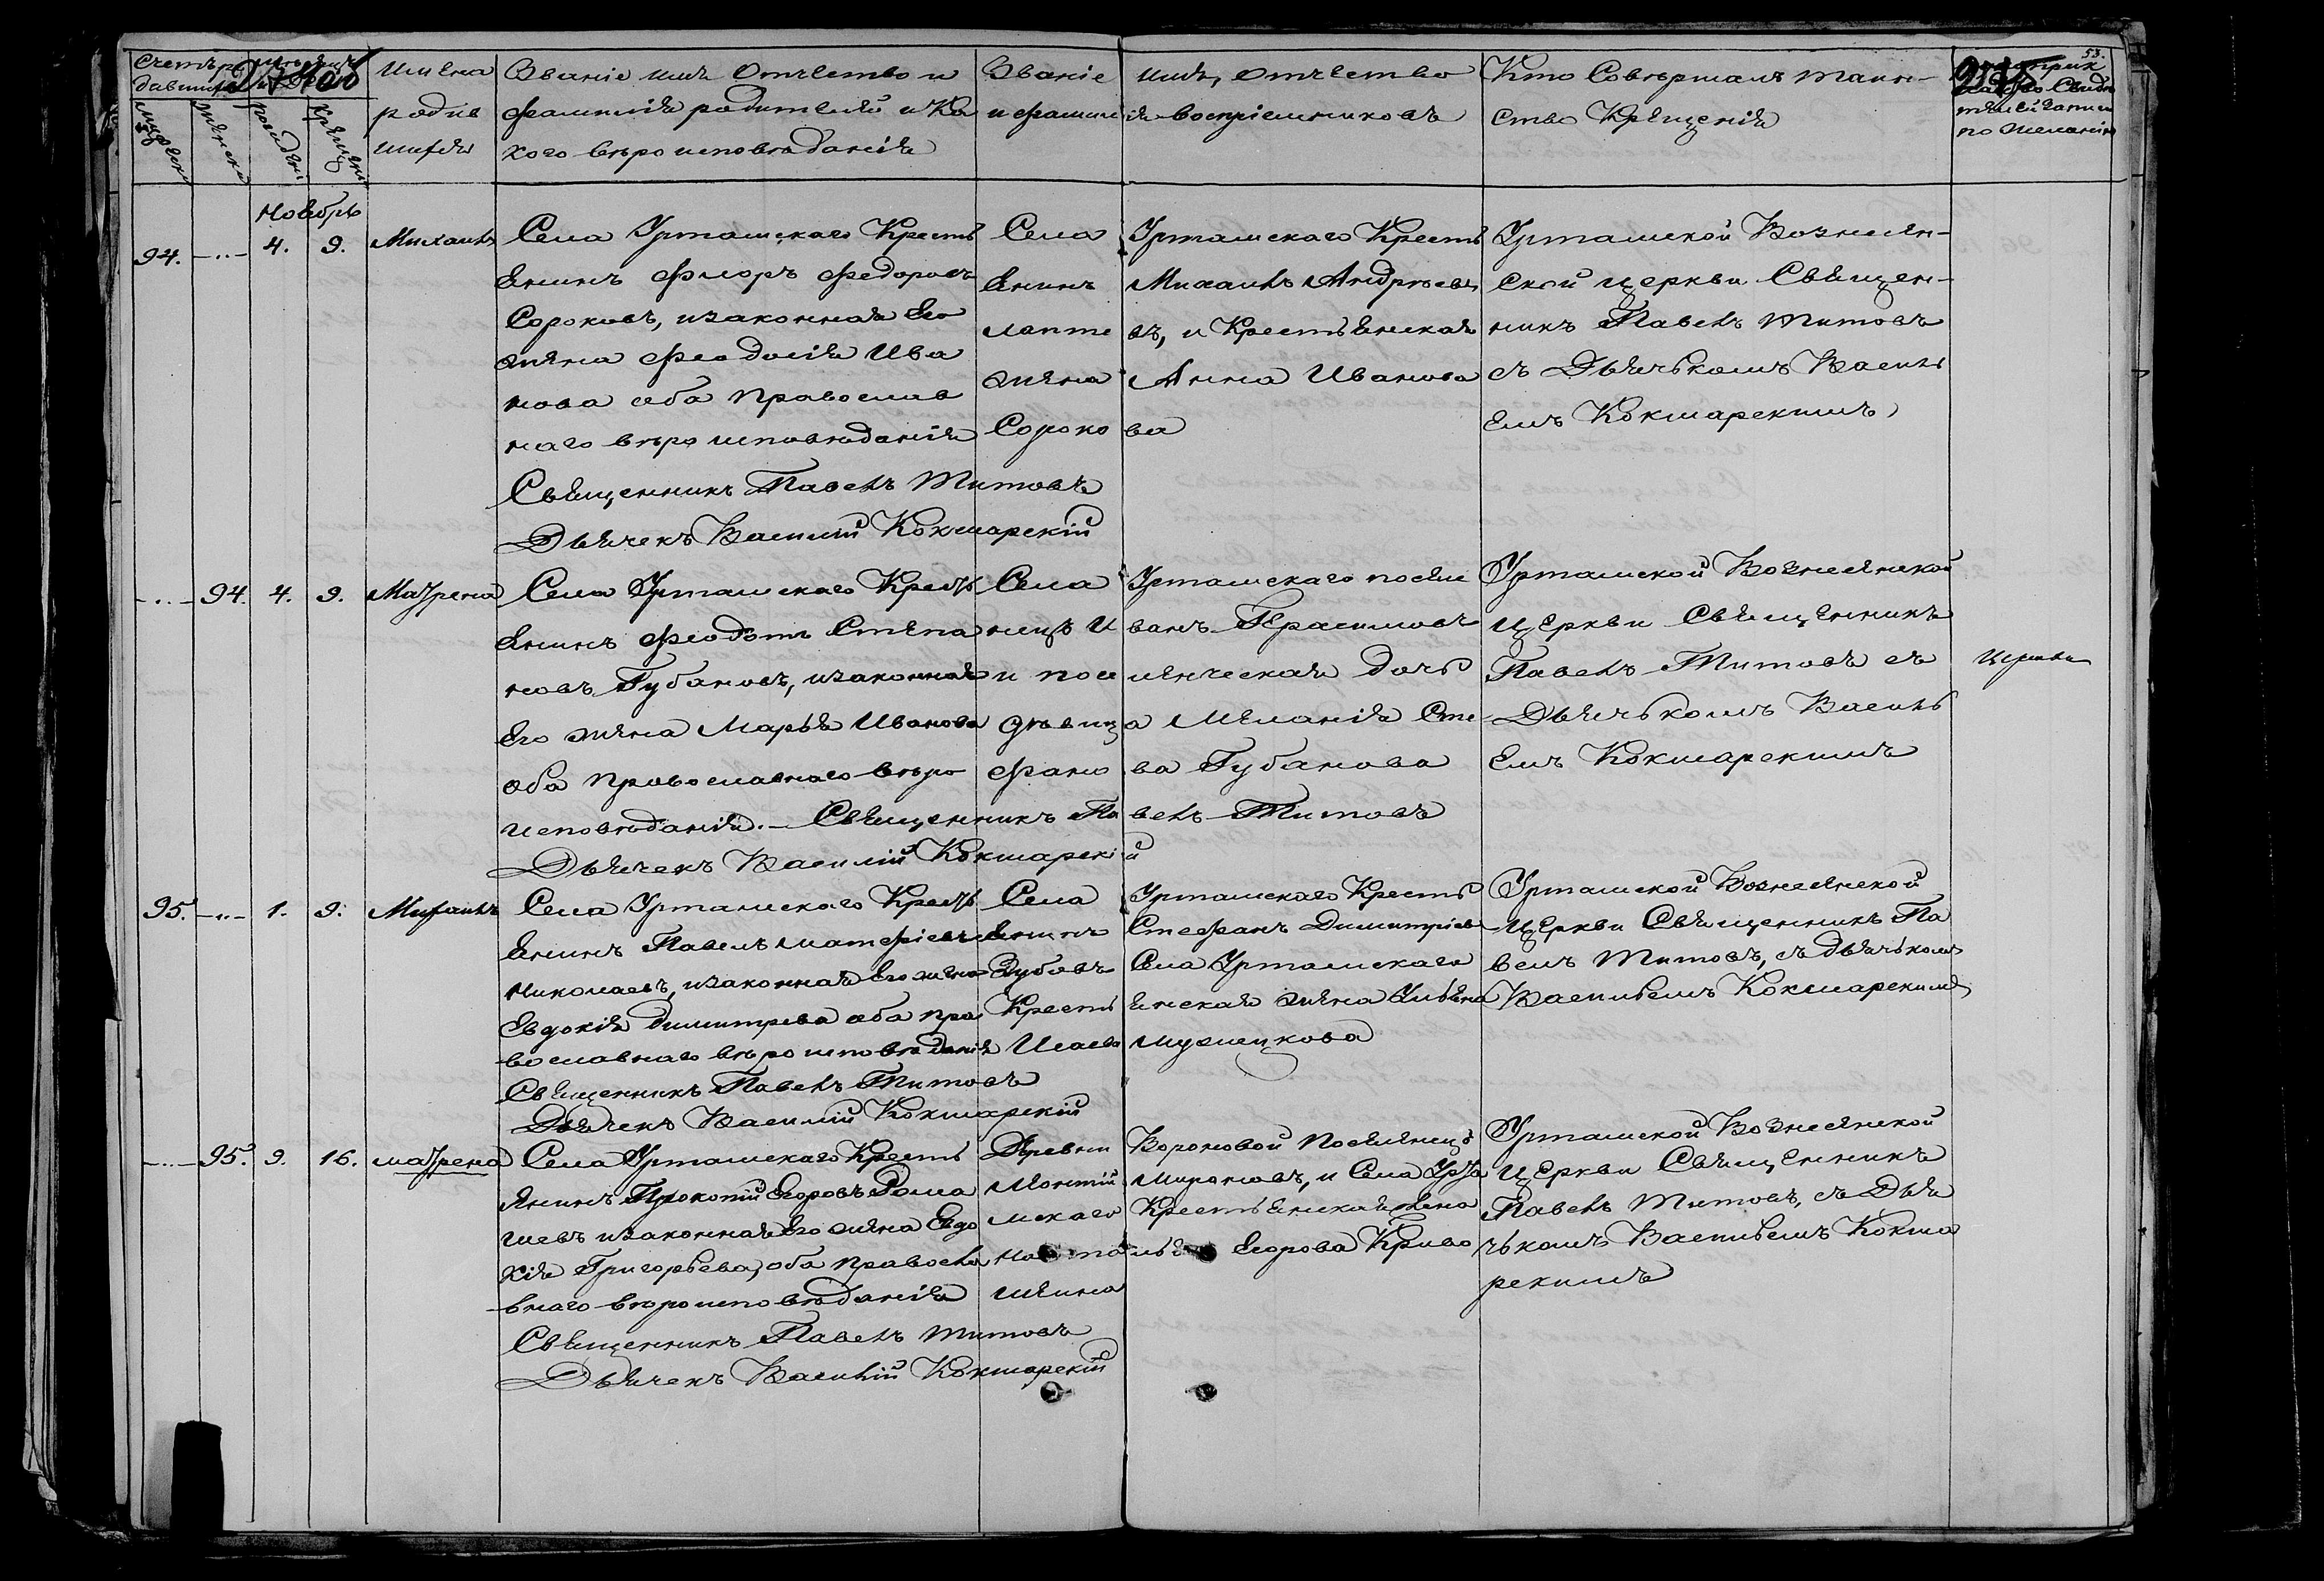 53.
Счетъ ро
дившихся
мужеска
женска
рожденія
крещенія
Имена
родив
шихся
Званіе имя Отчество и
фамилія родителей и Ка
кого вѣроисповѣданія
Званіе имя, отчество
и фамилія воспріемниковъ
Кто Совершалъ таин-
ство Крещенія
по желанію
Ноябрь
94. 4. 9. Михаилъ
Села Урташскаго Кресть
янинъ Флоръ Федоровъ
Сороковъ, изаконная Его
жена Феодосія Ива
нова оба православ
наго вѣроисповѣданія
Священникъ Павелъ Титовъ
Дьячекъ Василій Кокшарскій
Села Урташскаго Кресть
янинъ Михаилъ Андреевъ
лапте въ, и Крестьянская
жена Анна Иванова
Сороко ва
Урташской Вознесен-
ской церкви Священ-
никъ Павелъ Титовъ
съ Дьячькомъ Василь
емъ Кокшарскимъ
94. 4. 9. Матрена
Села Урташскаго Кресть
янинъ Феодотъ Степа
новъ Губановъ, изаконная
Его жена Марья Иванова
оба православнаго вѣро
исповѣданія. Священникъ Павелъ Титовъ
Дьячекъ Василій Кокшарскій
Села Урташскаго посяле
нецъ Иванъ Герасимовъ
и поселенческая дочь
дѣвица Меланія Сте
фанова Губанова
Урташской Вознесенской
Церкви Священникъ
Павелъ Титовъ съ
Дьячькомъ Василь
емъ Кокшарскимъ
95. 1. 9. Михаилъ
Села Урташскаго Кресть
янинъ Павелъ Матфіевъ
Николаевъ, изаконная Его жена
Евдокія Димитрева оба пра
вославнаго вѣроисповѣданія
Священникъ Павелъ Титовъ
Дьячекъ Василій Кокшарскій
Села Урташскаго Кресть
янинъ Стефанъ Димитріевъ
Зубовъ Села Урташскаго
Крестьянская жена Ульяна
Исаева
Урташской Вознесенской
Церкви Священникъ Па
велъ Титовъ, съ дьячькомъ
Васильемъ Кокшарскимъ
95. 9. 16. Матрена
Села Урташскаго Кресть
янинъ Прокопій Егоровъ Рома
шевъ изаконная Его жена Евдо
кія Григорьева, оба правосла
внаго вѣроисповѣданія
Священникъ Павелъ Титовъ
Дьячекъ Василій Кокшарскій
Деревни Вороновой Поселенецъ
Мироновъ, и Села Урта
шскаго Крестьянская жена
Наталья Егорова Криво
шеина
Урташской Вознесенской
Церкви Священникъ
Павелъ Титовъ, съ Дья
чькомъ Васильемъ Кокша
рскимъ